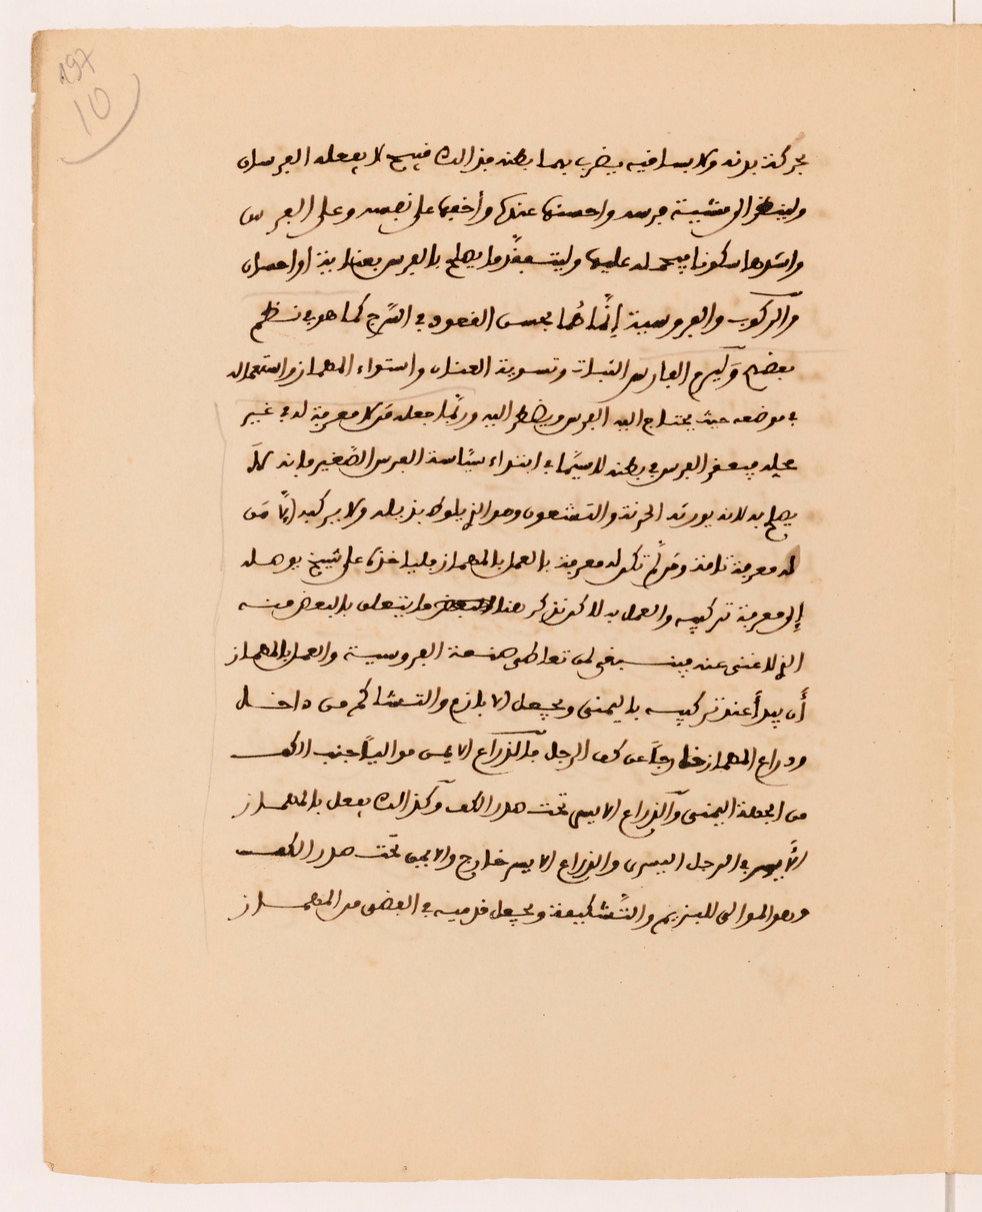 197
10
بحركة بدنه ولا بساقيه يضرب بهما بطنه فإن ذلك قبيح لا يفعله الفرسان
ولينظر إلى مشية فرسه واحسنها عندها وأخفها على نفسه وعلى الفرس
واشدها سكونا فيحمله عليها وليتفقد ما يصلح بالفرس
والركوب والفروسية إنَّما هُما بحسن القعود في السَّرج كما هو في نظم
بعضهم وَليلزم الفارس الثبات وتسوية العنان واستواء المهماز واستعماله
في موضعه حيث يحتاج اليه الفرس ويضطر اليه وربَّما جعله مَن لا معرفة له في غير
محله فيعقر الفرس في بطنه لاسيَّما في ابتداء سيَّاسة الفرس الصَّغير فإنه لا
يصلح به لانه يورثه الحرنة والتشعون وهو الذي يلوط بذيله ولا يركبه إلَّا مَن
له معرفة تامة ومَن لَّم تكن له معرفة بالعمل بالمهماز فليأخذها على شيخ يوصله
إلى معرفة تركيبه والعمل به لاكن نذكر هنا ما يتعلق بالبعض منه
الذي لا غنى عنه فينبغي لمن تعاطى صنعة الفروسية والعمل بالمهماز
أن يبدأ عند تركيبه باليمنى ويجعل الابازم والتشاكم من داخل
وذراع المهماز خارجاً عن كعب الرجل فالذراع الايمن مواليا لجنب الكعب
من الجهة اليمنى والذراع الايسر تحت هدر الكعب وكذالك يفعل بالمهماز
الأيسر في الرجل اليسرى والذراع الايسر خارج والايمن تحت هدر الكعب
وهو الموالى للبزيم والتَّشكيمة ويجعل قدميه في